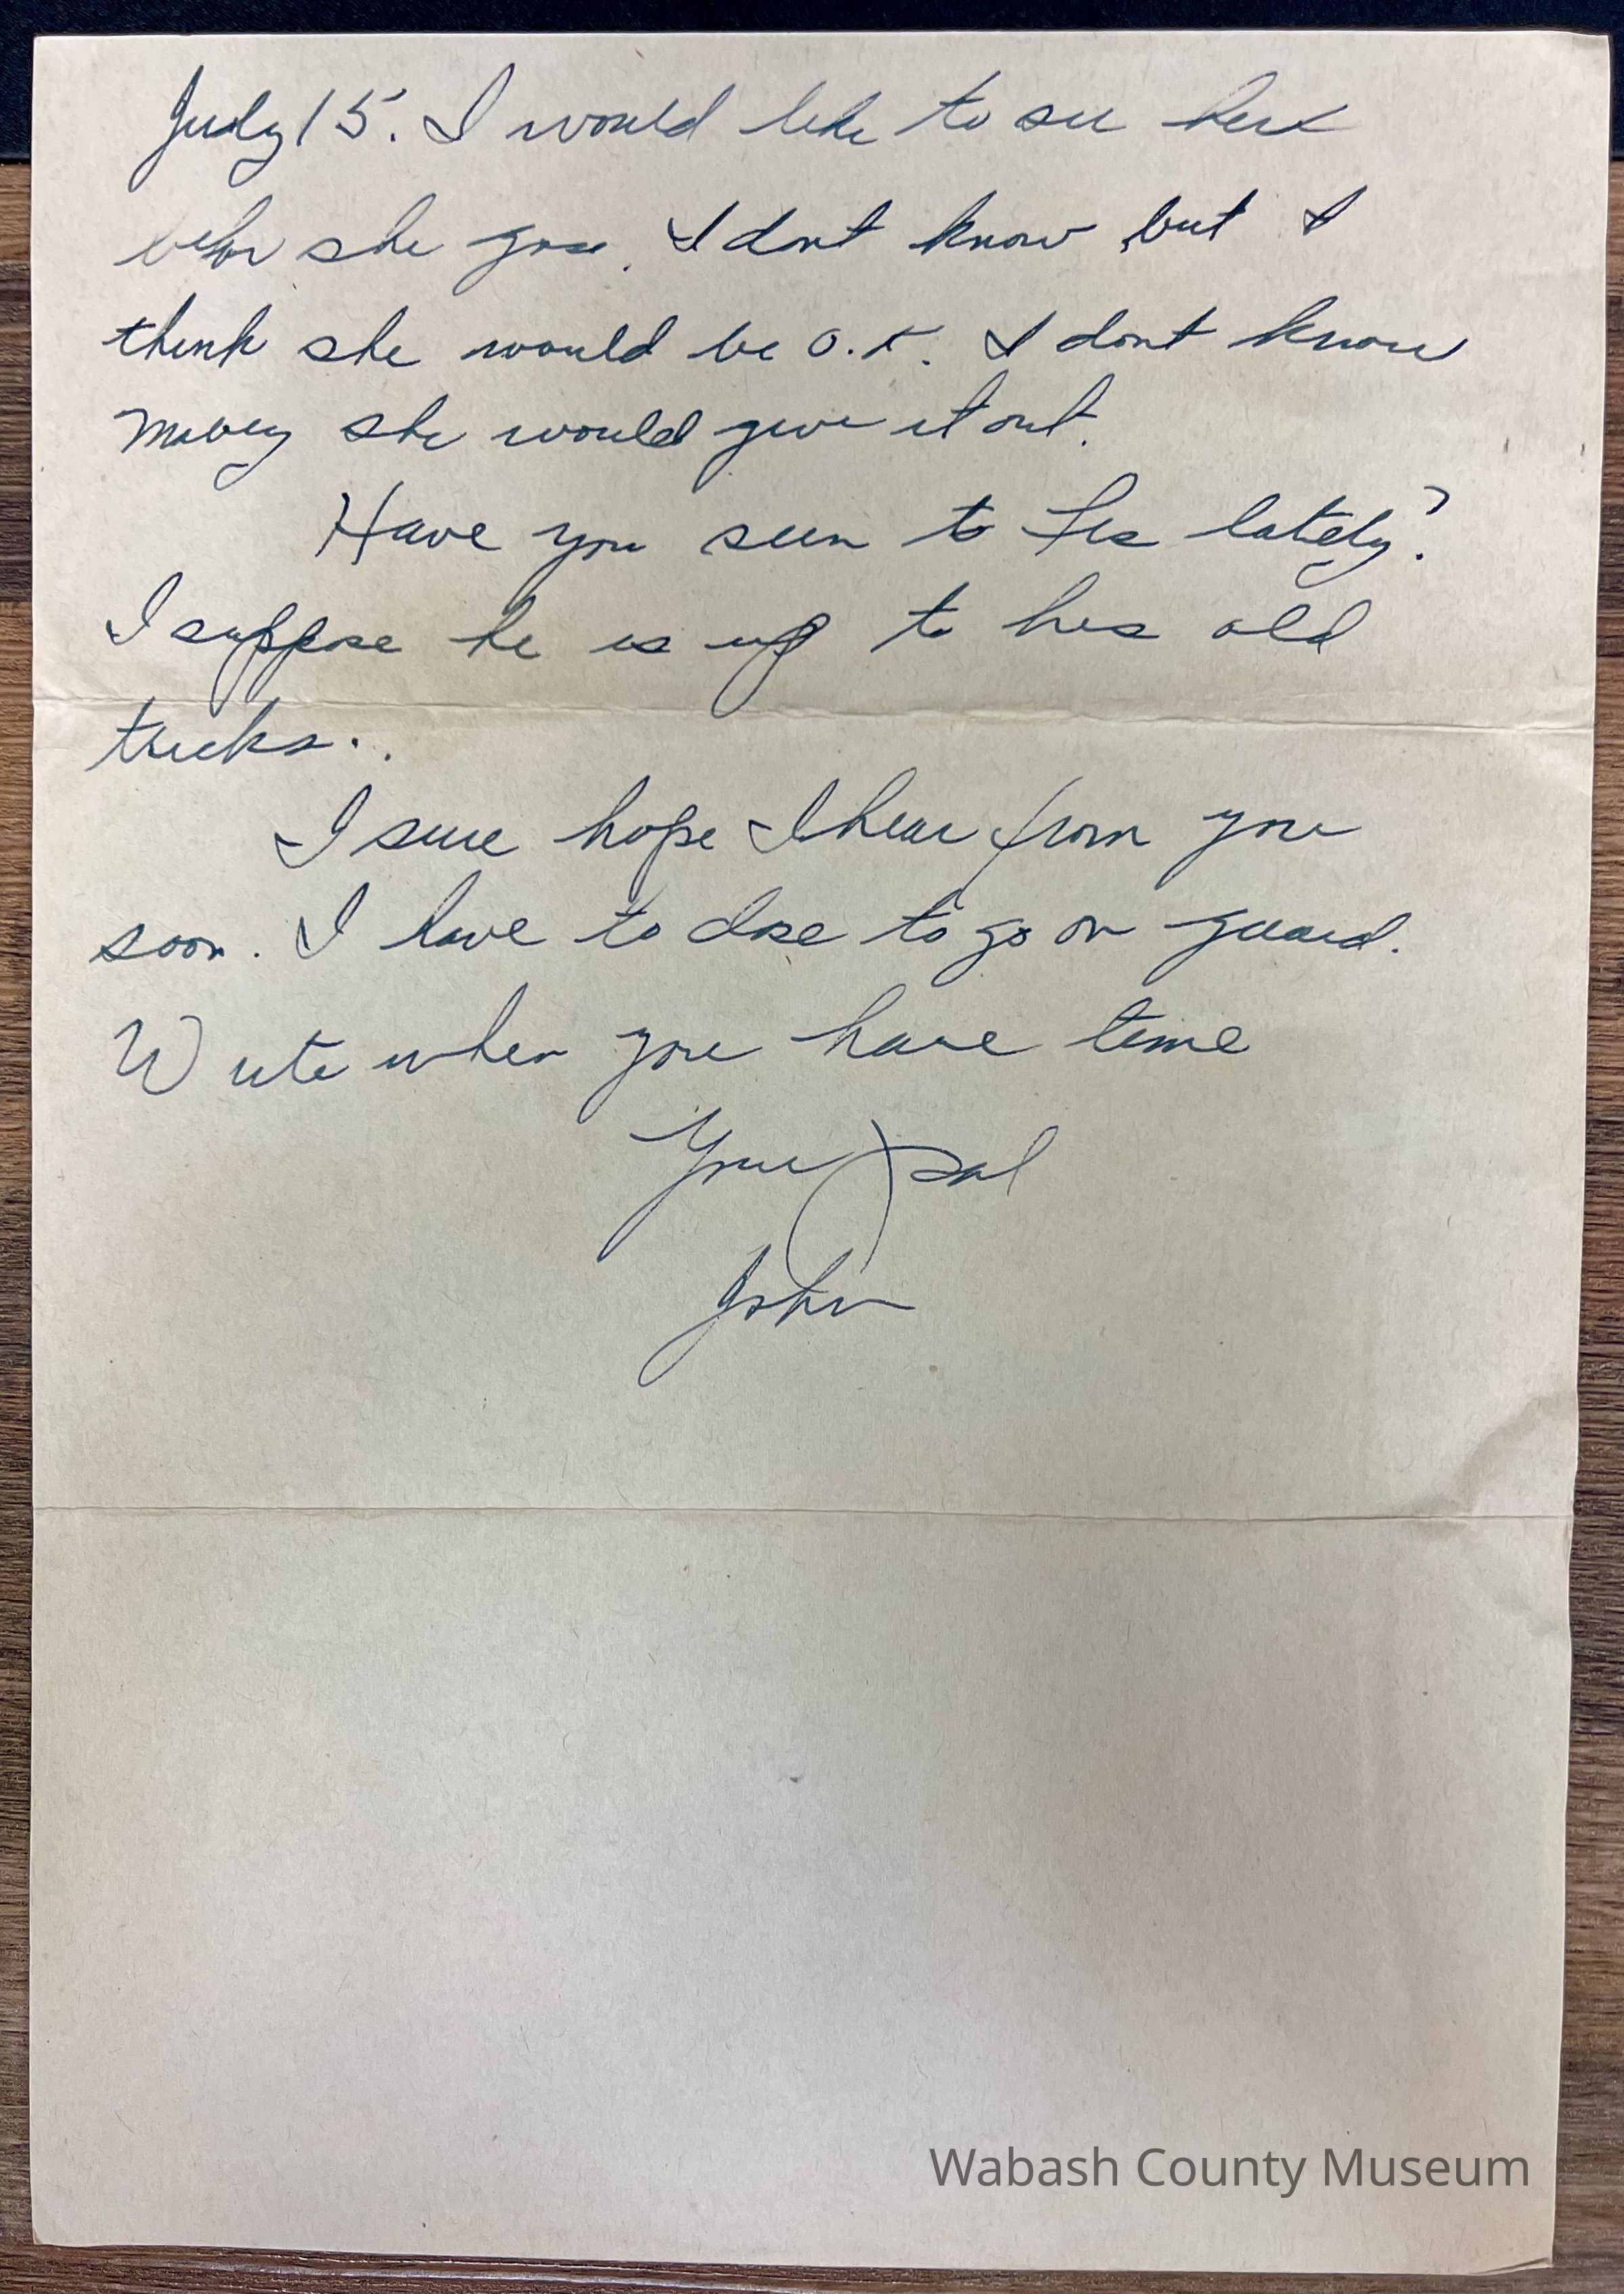 July 15. I would like to see her
befor she goes. I dont know but I
think she would be O.K. I dont know
mabey she would give it out.
Have you seen to Les lately?
I suppose he is up to his old
tricks..
I sure hope I hear from you
soon. I have to close to go on guard.
Write when you have time
Your pal
John
Wabash County Museum